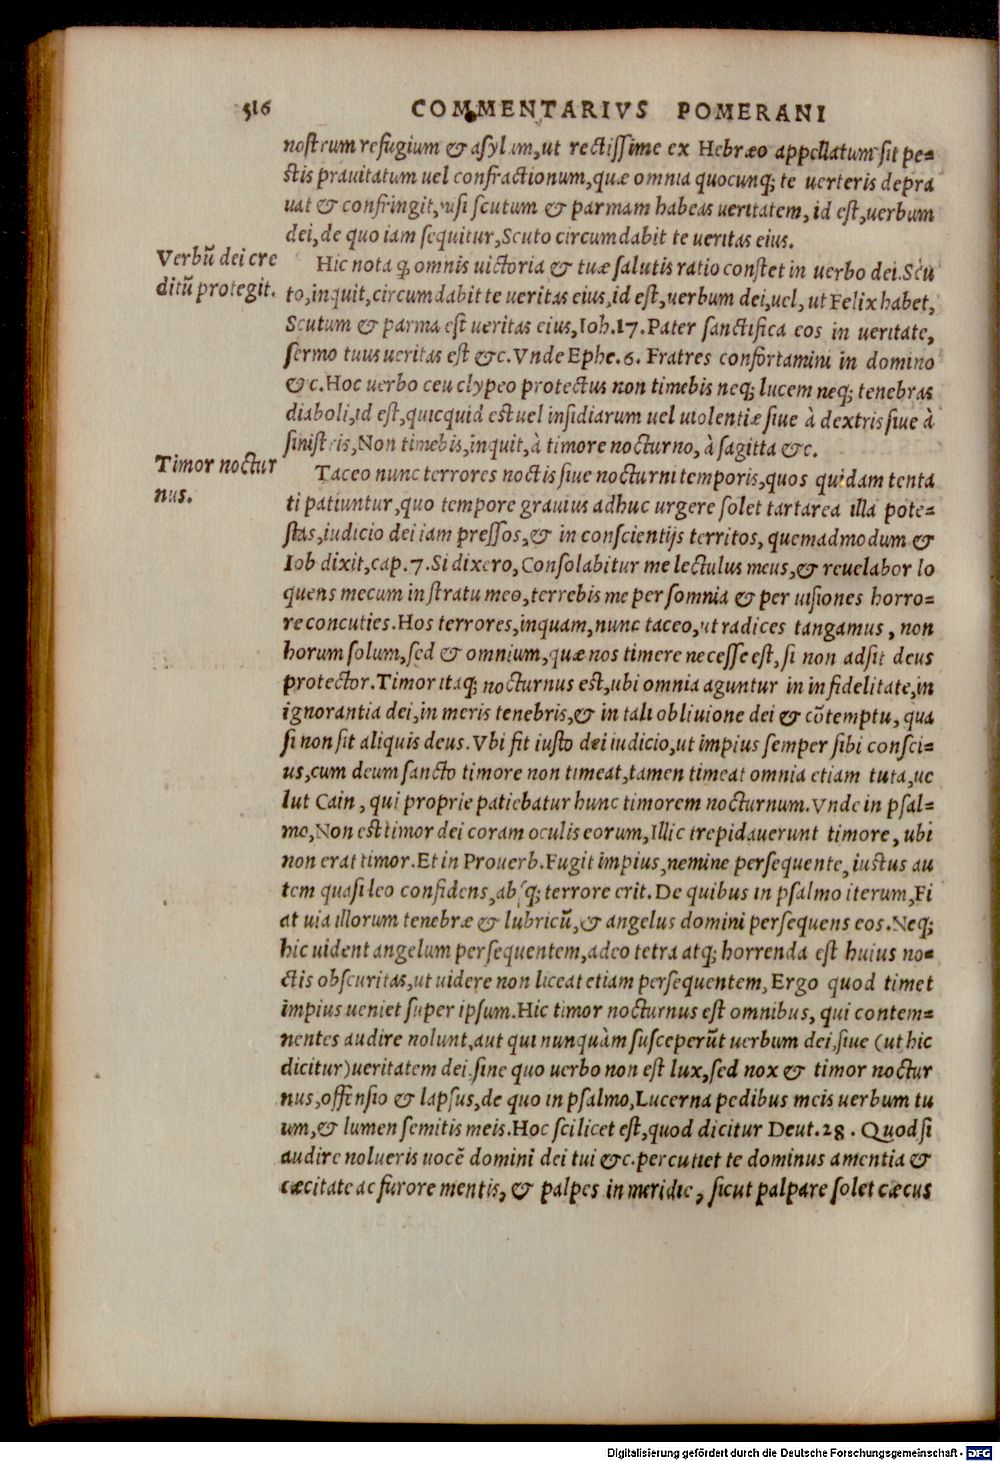 516 COMMENTARIVS POMERANI
nostrum refugium & asylum, ut rectissime ex Hebræo appellatum sit pe=
stis prauitatum uel confractionum, quæ omnia quocunq; te uerteris depra
uat & confringit, nisi scutum & parmam habeas ueritatem, id est, uerbum
dei, de quo iam sequitur, Scuto circumdabit te ueritas eius.
Verbũ dei cre
ditũ protegit.
Hic nota q̃ omnis uictoria & tuæ salutis ratio constet in uerbo dei. Scu
to, inquit, circumdabit te ueritas eius, id est, uerbum dei, uel, ut Felix habet,
Scutum & parma est ueritas eius, Ioh. 17. Pater sanctifica eos in ueritate,
sermo tuus ueritas est &c. Vnde Ephe. 6. Fratres confortamini in domino
&c. Hoc uerbo ceu clypeo protectus non timebis neq; lucem neq; tenebras
diaboli, id est, quicquid est uel insidiarum uel uiolentiæ siue à dextris siue à
sinistris, Non timebis, inquit, à timore nocturno, à sagitta &c.
Timor noctur
nus.
Taceo nunc terrores noctis siue nocturni temporis, quos quidam tenta
ti patiuntur, quo tempore grauius adhuc urgere solet tartarea illa pote=
stas, iudicio dei iam pressos, & in conscientijs territos, quemadmodum &
Iob dixit, cap. 7. Si dixero, Consolabitur me lectulus meus, & reuelabor lo
quens mecum in stratu meo, terrebis me per somnia & per uisiones horro=
re concuties. Hos terrores, inquam, nunc taceo, ut radices tangamus, non
horum solum, sed & omnium, quæ nos timere necesse est, si non adsit deus
protector. Timor itaq; nocturnus est, ubi omnia aguntur in infidelitate, in
ignorantia dei, in meris tenebris, & in tali obliuione dei & cõtemptu, qua
si non sit aliquis deus. Vbi fit iusto dei iudicio, ut impius semper sibi consci=
us, cum deum sancto timore non timeat, tamen timeat omnia etiam tuta, ue
lut Cain, qui proprie patiebatur hunc timorem nocturnum. Vnde in psal=
mo, Non est timor dei coram oculis eorum, Illic trepidauerunt timore, ubi
non erat timor. Et in Prouerb. Fugit impius, nemine persequente, iustus au
tem quasi leo confidens, absq; terrore erit. De quibus in psalmo iterum, Fi
at uia illorum tenebræ & lubricũ, & angelus domini persequens eos. Neq;
hic uident angelum persequentem, adeo tetra atq; horrenda est huius no=
ctis obscuritas, ut uidere non liceat etiam persequentem, Ergo quod timet
impius ueniet super ipsum. Hic timor nocturnus est omnibus, qui contem=
nentes audire nolunt, aut qui nunquàm susceperũt uerbum dei, siue (ut hic
dicitur) ueritatem dei, sine quo uerbo non est lux, sed nox & timor noctur
nus, offensio & lapsus, de quo in psalmo, Lucerna pedibus meis uerbum tu
um, & lumen semitis meis. Hoc scilicet est, quod dicitur Deut. 28. Quod si
audire nolueris uocẽ domini dei tui &c. percutiet te dominus amentia &
cæcitate ac furore mentis, & palpes in meridie, sicut palpare solet cæcus
Digitalisierung gefördert durch die Deutsche Forschungsgemeinschaft - DFG